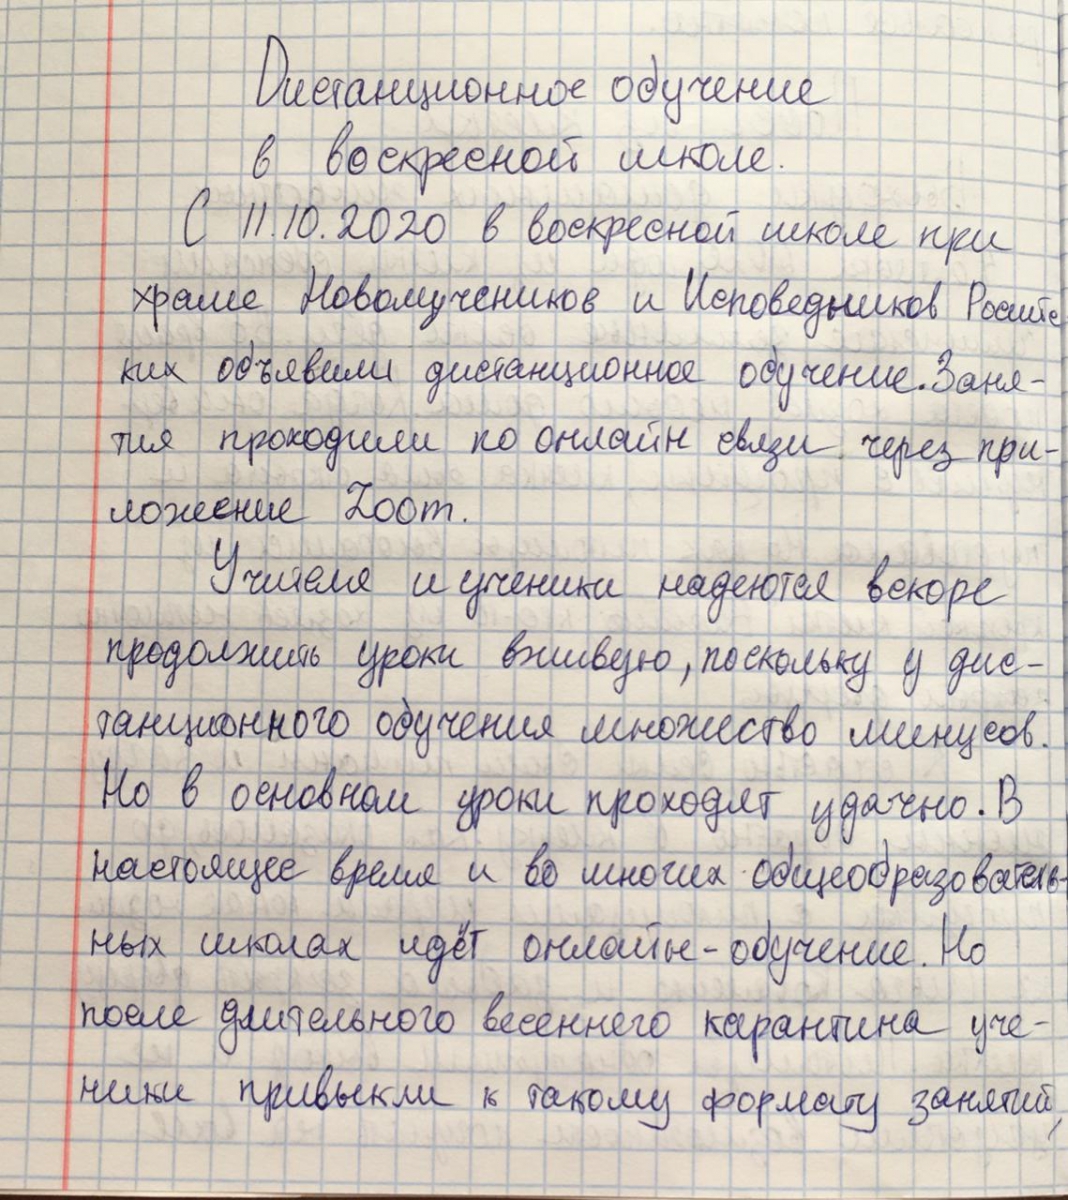 Дистанционное обучение
в воскресной школе.
С 11.10.2020 в воскресной школе при
храме Новомучеников и Исповедников Россий
ких объявили дистанционное обучение. Заня-
тия проходили по онлайн связи через при-
ложение Zoom.
Учителя и ученики надеются вскоре
продолжить уроки вживую, поскольку у дис-
танционного обучения множество минусов.
Но в основном уроки проходят удачно. В
настоящее время и во многих общеобразователь-
ных школах идёт онлайн-обучение. Но
после длительного весеннего карантина уче-
ники привыкли к такому формату занятий,